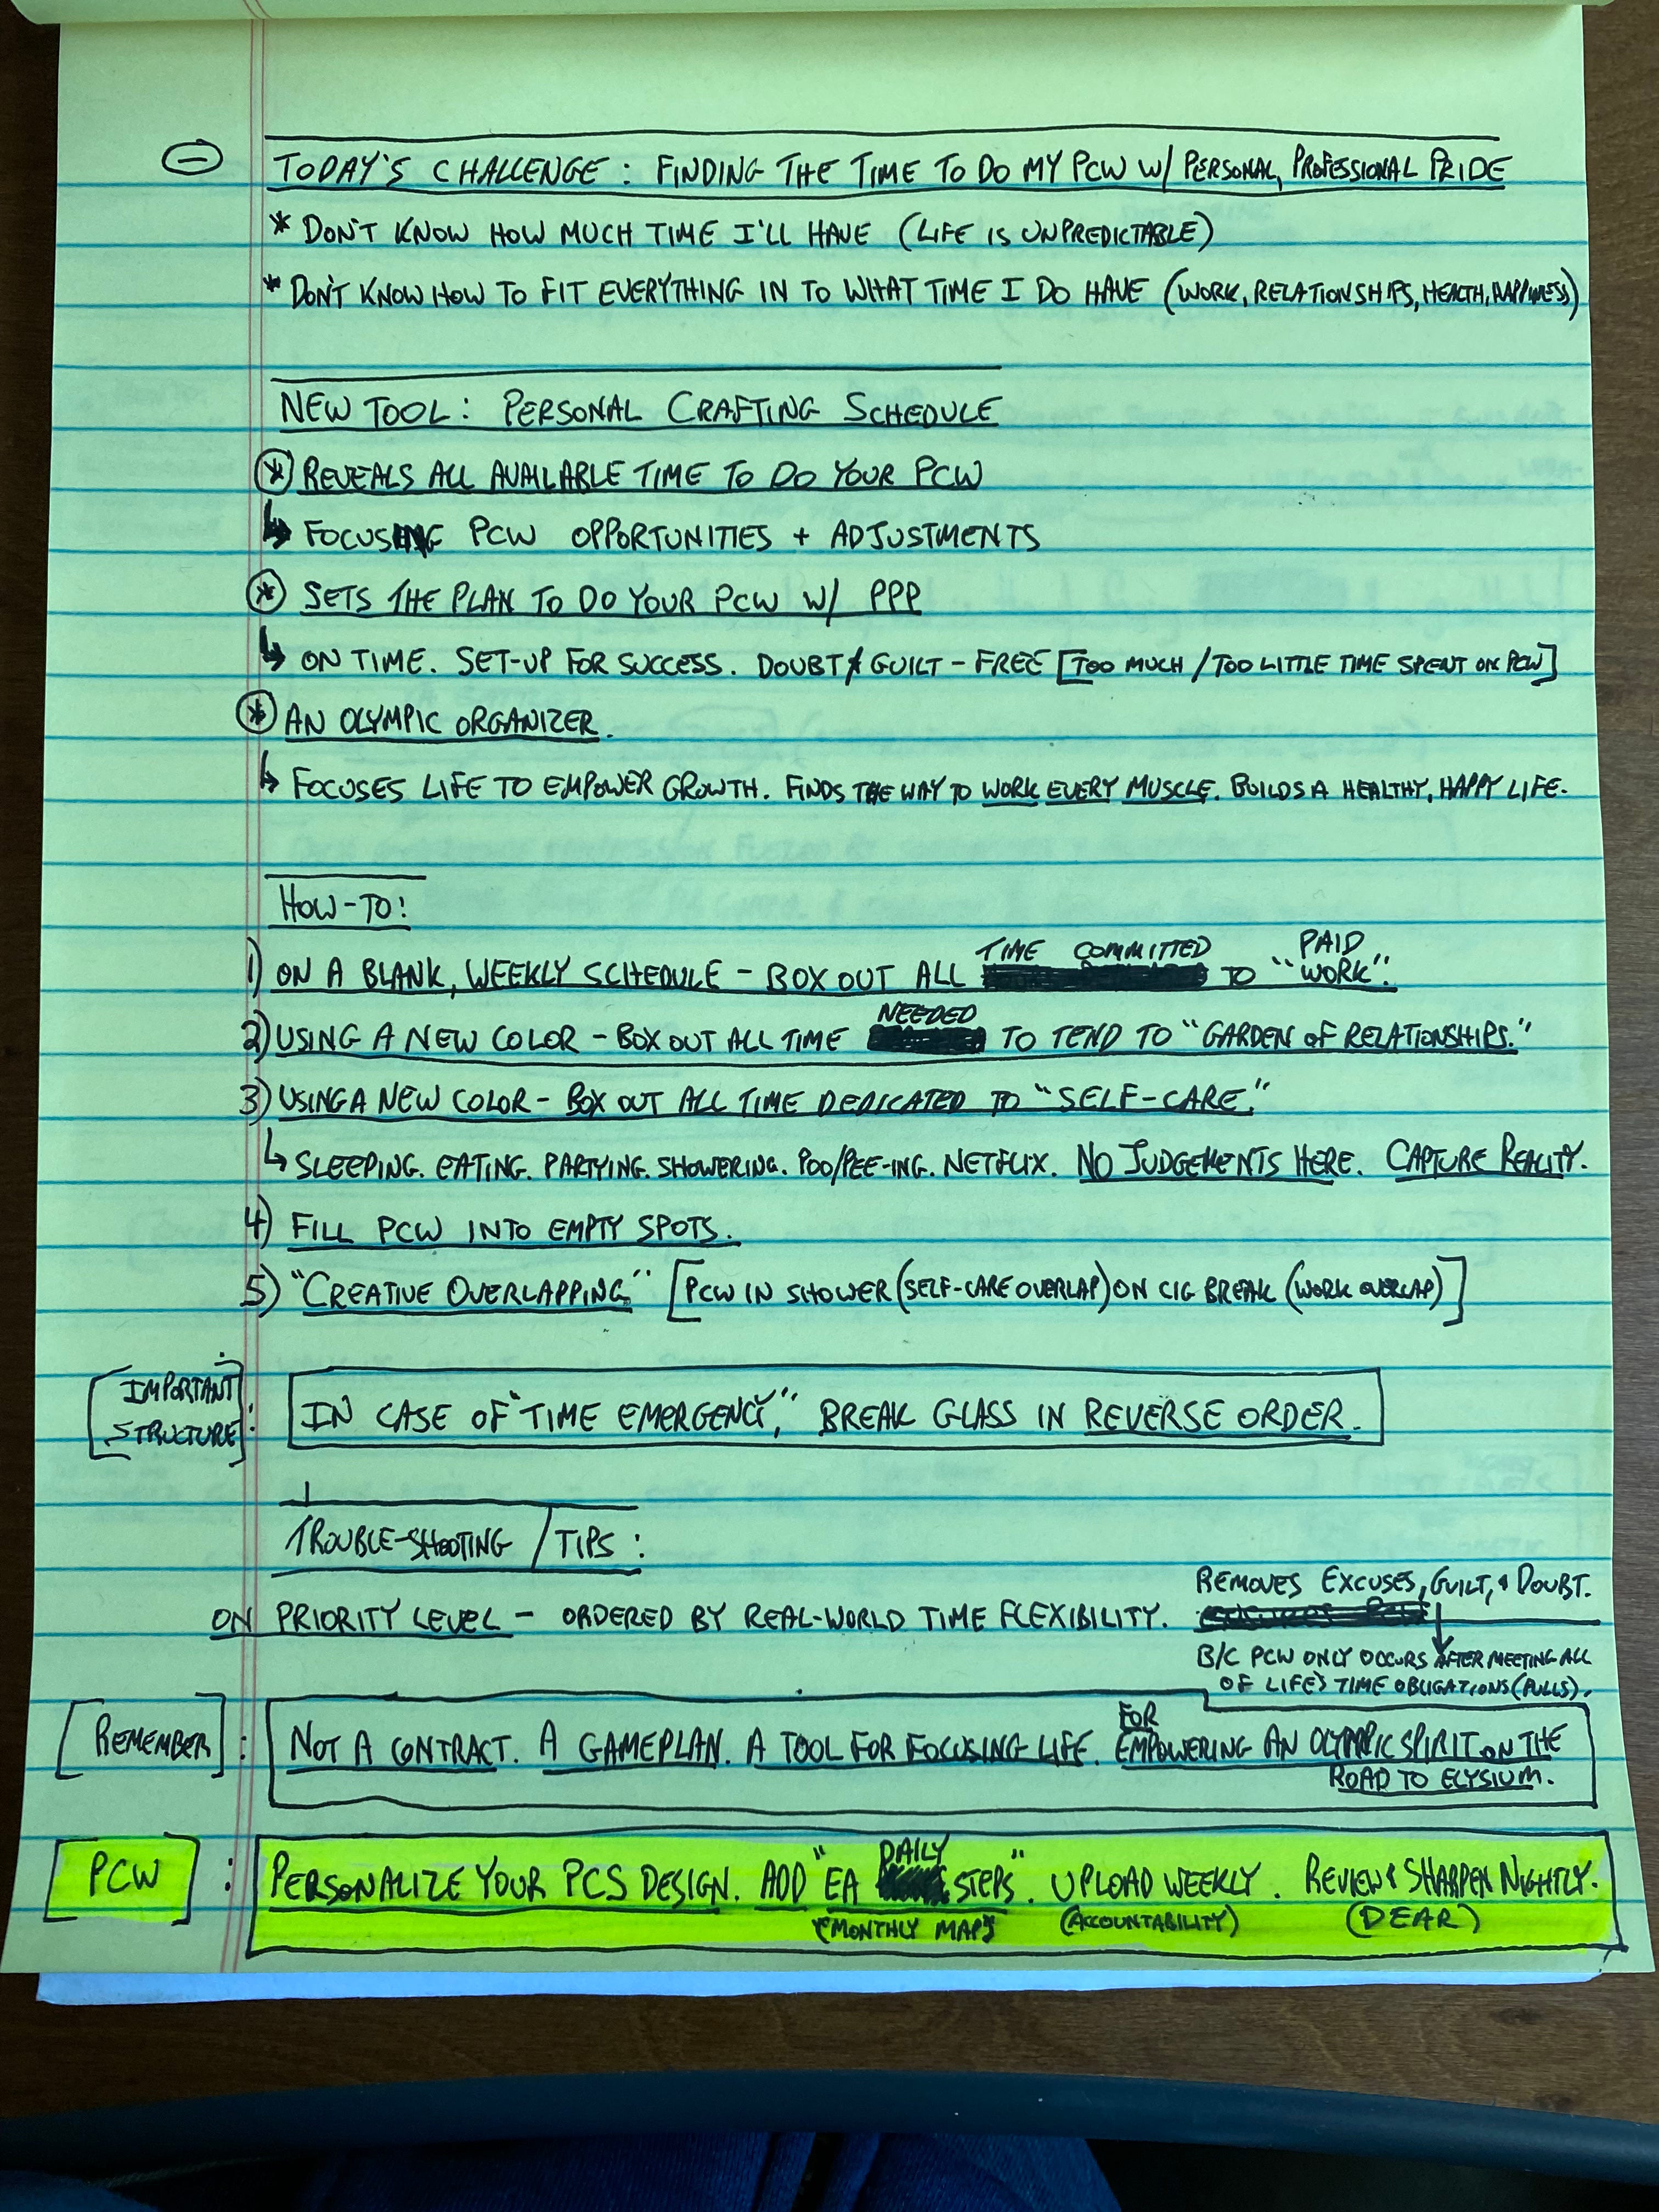 TODAY'S CHALLENGE: FINDING THE TIME TO DO MY PCW W/ PERSONAL, PROFESSIONAL PRIDE
* DON'T KNOW HOW MUCH TIME I'LL HAVE (LIFE IS UNPREDICTABLE)
* DON'T KNOW HOW TO FIT EVERYTHING IN TO WHAT TIME I DO HAVE (WORK, RELATIONSHIPS, HEALTH, HAPPINESS)
NEW TOOL: PERSONAL CRAFTING SCHEDULE
* REVEALS ALL AVAILABLE TIME TO DO YOUR PCW
↳ FOCUSING PCW OPPORTUNITIES + ADJUSTMENTS
* SETS THE PLAN TO DO YOUR PCW W/ PPP
↳ ON TIME. SET-UP FOR SUCCESS. DOUBT/GUILT-FREE [TOO MUCH/TOO LITTLE TIME SPENT ON PCW]
* AN OLYMPIC ORGANIZER.
↳ FOCUSES LIFE TO EMPOWER GROWTH. FINDS THE WAY TO WORK EVERY MUSCLE. BUILDS A HEALTHY, HAPPY LIFE.
HOW-TO:
1) ON A BLANK, WEEKLY SCHEDULE - BOX OUT ALL TIME COMMITTED TO "PAID WORK".
2) USING A NEW COLOR - BOX OUT ALL TIME NEEDED TO TEND TO "GARDEN OF RELATIONSHIPS."
3) USING A NEW COLOR - BOX OUT ALL TIME DEDICATED TO "SELF-CARE."
↳ SLEEPING. EATING. PARTYING. SHOWERING. POO/PEE-ING. NETFLIX. NO JUDGEMENTS HERE. CAPTURE REALITY.
4) FILL PCW INTO EMPTY SPOTS.
5) "CREATIVE OVERLAPPING" [PCW IN SHOWER (SELF-CARE OVERLAP) ON CIG BREAK (WORK OVERLAP)]
[IMPORTANT STRUCTURE]: IN CASE OF "TIME EMERGENCY," BREAK GLASS IN REVERSE ORDER.
TROUBLE-SHOOTING / TIPS:
ON PRIORITY LEVEL - ORDERED BY REAL-WORLD TIME FLEXIBILITY. REMOVES EXCUSES, GUILT, & DOUBT.
B/C PCW ONLY OCCURS AFTER MEETING ALL
OF LIFE'S TIME OBLIGATIONS (PULLS).
[REMEMBER]: NOT A CONTRACT. A GAMEPLAN. A TOOL FOR FOCUSING LIFE. FOR EMPOWERING AN OLYMPIC SPIRIT ON THE
ROAD TO ELYSIUM.
[PCW]: PERSONALIZE YOUR PCS DESIGN. ADD "EA DAILY STEPS". UPLOAD WEEKLY. REVIEW & SHARPEN NIGHTLY.
("MONTHLY MAP") (ACCOUNTABILITY) (DEAR)